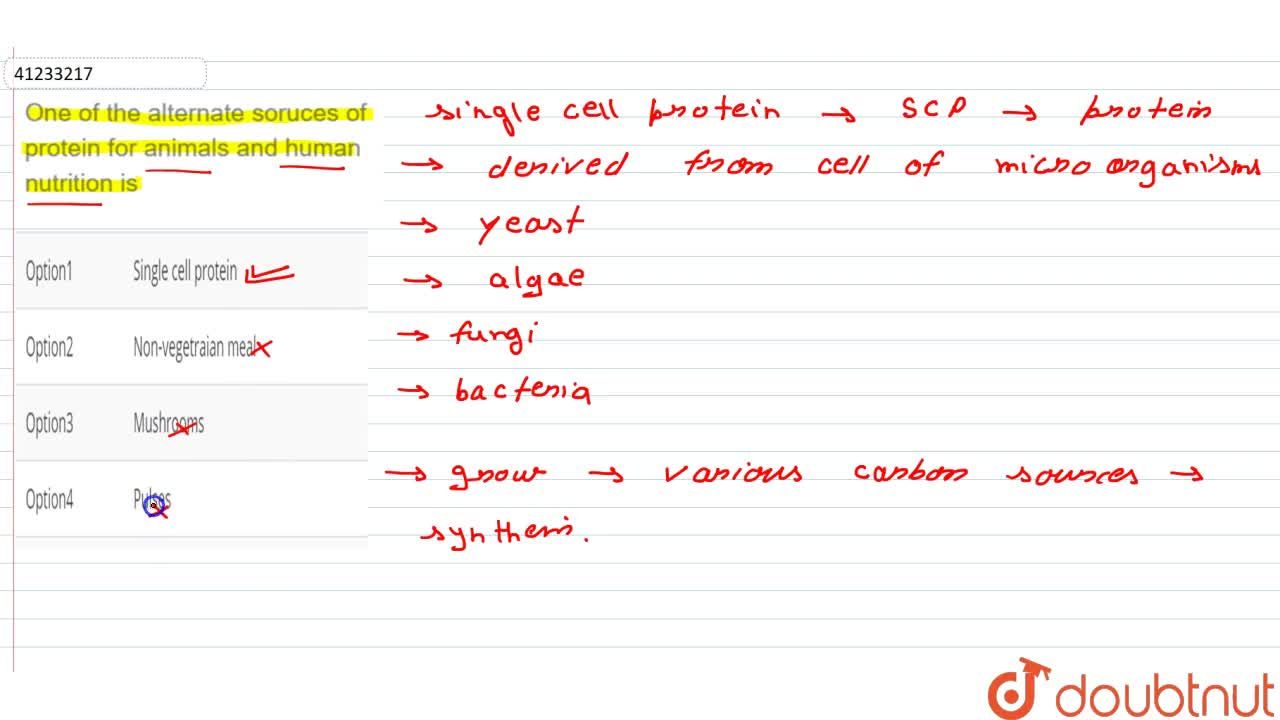 41233217
One of the alternate soruces of
protein for animals and human
nutrition is
Option1 Single cell protein
Option2 Non-vegetraian meal
Option3 Mushrooms
Option4 Pulses
single cell protein → SCP → protein
→ derived from cell of micro organisms
→ yeast
→ algae
→ fungi
→ bacteria
→ grow → various carbon sources →
synthesis.
doubtnut